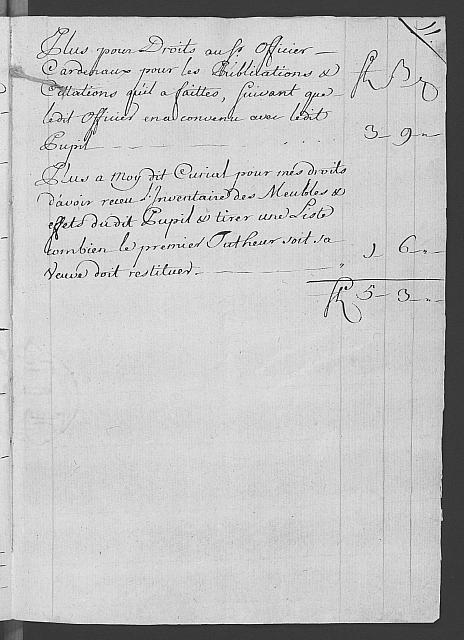 11
Plus pour Droits au Sr. Officier
Cardinaux pour les Publications &
Cittations qu'il a faittes, Suivant que
ledit Officier en a convenu avec ledit
Pupil 3 - 9 "
Plus a moy dit Curial pour mes droits
d'avoir receu l'Inventaire des Meubles &
effets du dit Pupil & tirer une Liste
combien le premier Tutheur soit sa
Veuve doit restituer. " 1 6 "
5 - 3 "